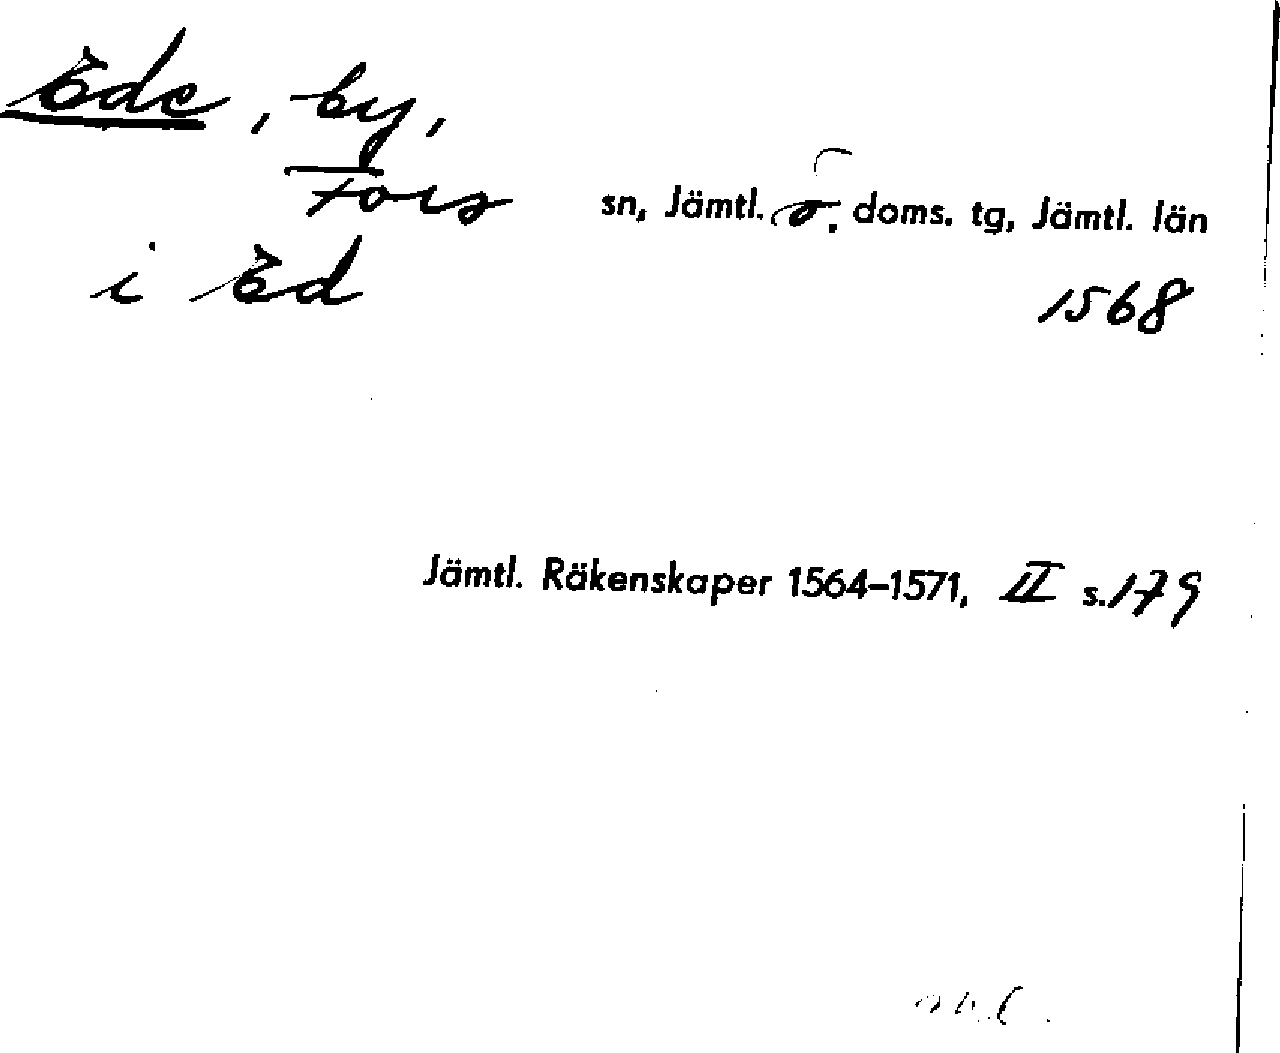 Ede, by,
Fors sn, Jämtl. ö. doms. tg, Jämtl. län
i Ed
1568
Jämtl. Räkenskaper 1564–1571, II s. 179